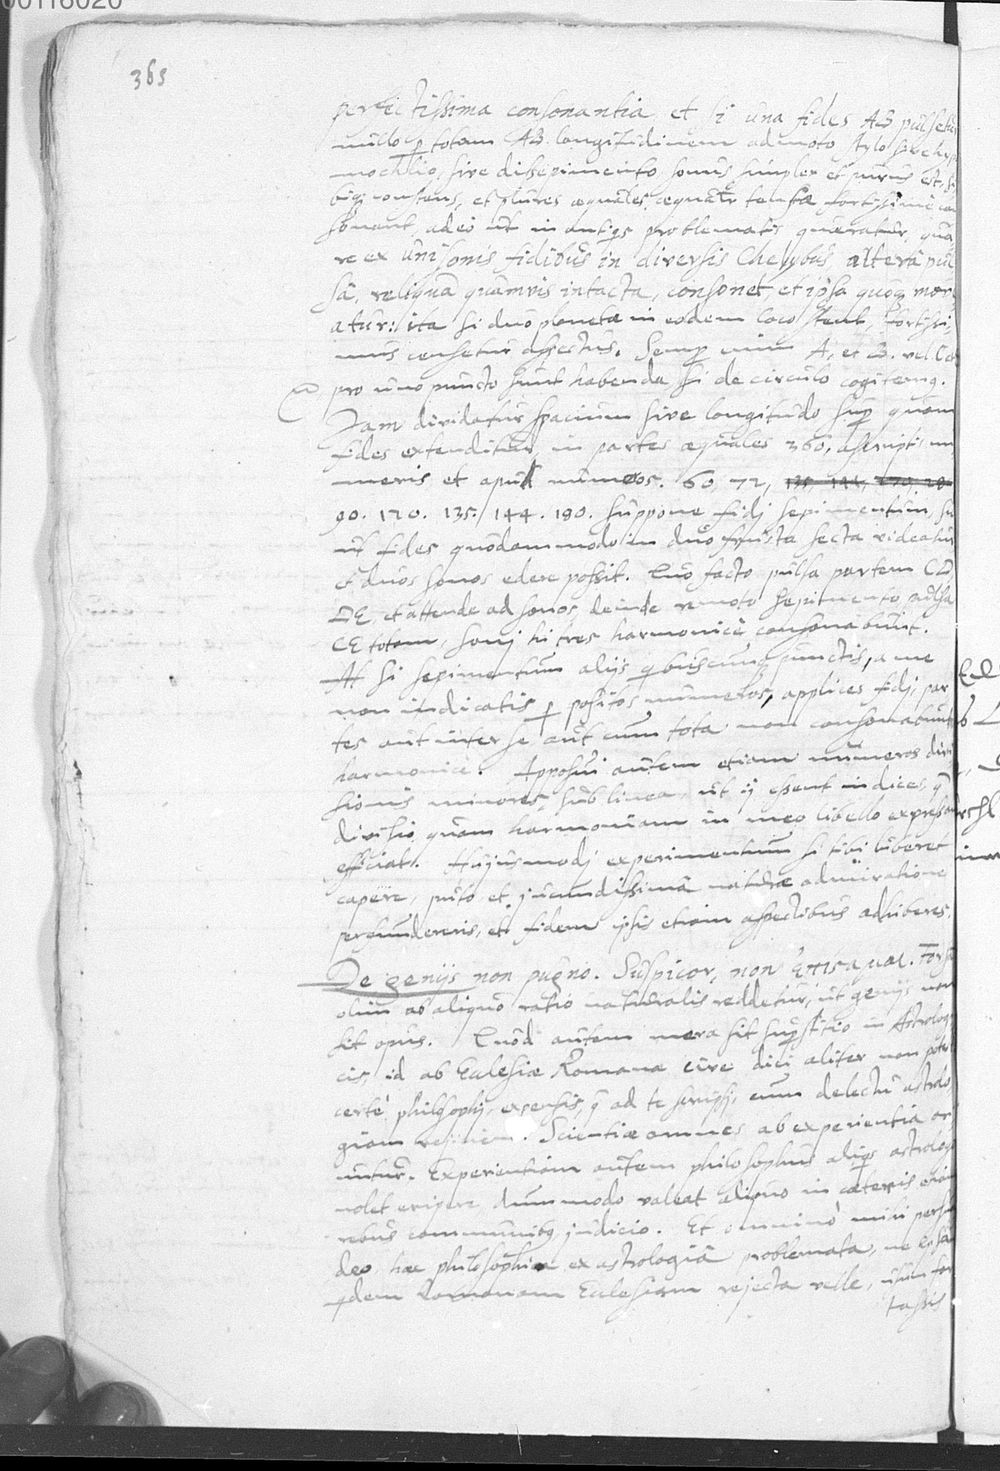 00118020
365
perfectissima consonantia et si una fides AB pulsetur
nullo p totam AB longitudinem admoto stylo sive
mochlio, sive dissepimento, sonus simplex et purus est, si
bigi constans, et plures æquales, æqualr tensæ fortissimè con
sonant, adeò ut in antiqis problematis quæratur, qua
re ex unisonis fidibus in diversis Chelybus alterâ pul
sâ, reliqua quamvis intacta, consonet, et ipsa quoq move
atur: ita si duo planetæ in eodem loco stent, fortissi,
mus censetur aspectus. Semp enim A, et B. vel C et
pro uno puncto sunt habenda si de circulo cogitemq.
Jam dividatur spacium sive longitudo sup quam
fides extenditur, in partes æquales 360, ascriptis nu
meris et apud numeros. 60, 72,
90. 120. 135. 144. 180. suppone fidj sepimentum, sic
ut fides quodammodo in duo frusta secta videatur
et duos sonos edere possit. Quo facto pulsa partem CD,
DE, et attende ad sonos, deinde remoto sepimento pulsa
CE totam, sonj hi tres harmonicè consonabunt.
At si sepimentum alijs qbuscunq punctis, a me
non indicatis p positos numeros, applices fidj, par
tes aut inter se, aut cum tota non consonabunt
harmonicè. Apposui autem etiam numeros divi
sionis minores, sub linea, ut ij essent indices, q
divisio, quam harmoniam in meo libello expressam
efficiat. Hujusmodj experimentum si tibi luberet
capere, puto et jucundissimâ naturæ admiratione
perfundereris, et fidem ipsis etiam aspectibus adhiberes.
De genijs non pugno. Suspicor, non ἐπίσαμαι. Forsan
olim ab aliquo ratio naturalis reddetur, ut genijs non
sit opus. Quod autem mera sit supstitio in Astrologi
cis, id ab Eclesiæ Romanæ cive dici aliter non potest
certè philosophj, expensis, q ad te scripsj, cum delectu astrolo
giam rejiciem. Scientiæ omnes ab experientia ori
untur. Experientiam autem philosophus aliqis astrologo
nolet eripere, dummodo valeat aliquo in cæteris etiam
rebus communibq judicio. Et omninò mihi persua
deo, hæc philosophica ex astrologiâ problemata, ne ipsam
qdem Romanam Eclesiam rejecta velle, usum for
tassis